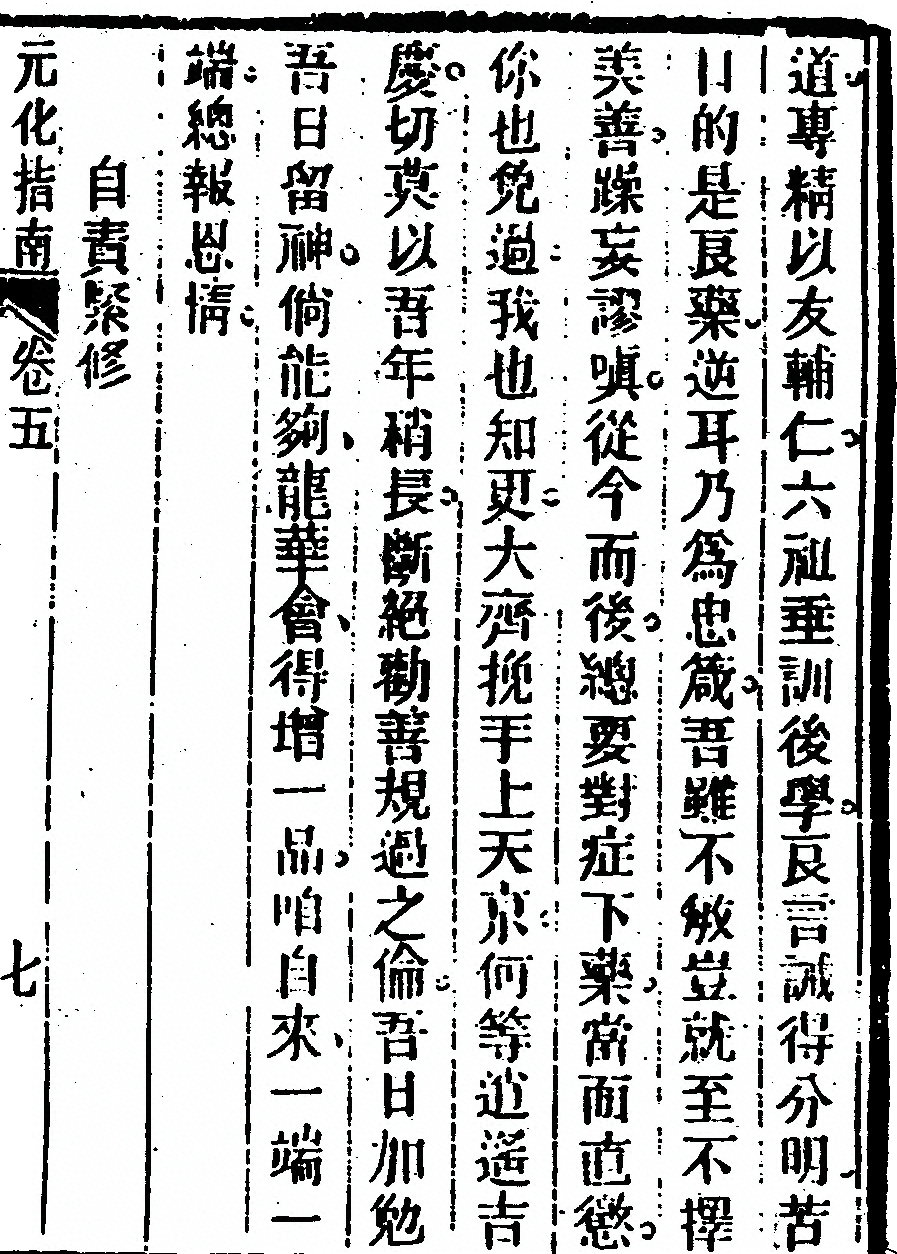 道專精以友輔仁六祖垂訓後學良言誠得分明苦
口的是良藥逆耳乃為忠箴吾雖不敏豈就至不擇
美善躁妄謬嗔從今而後總要對症下藥當面直懲
你也免過我也知更大齊挽手上天京何等逍遙吉
慶切莫以吾年稍長斷絕勸善規過之倫吾日加勉
吾日留神倘能夠龍華會得增一品咱自來一端一
端總報恩情
自責緊修
元化指南 卷五 七